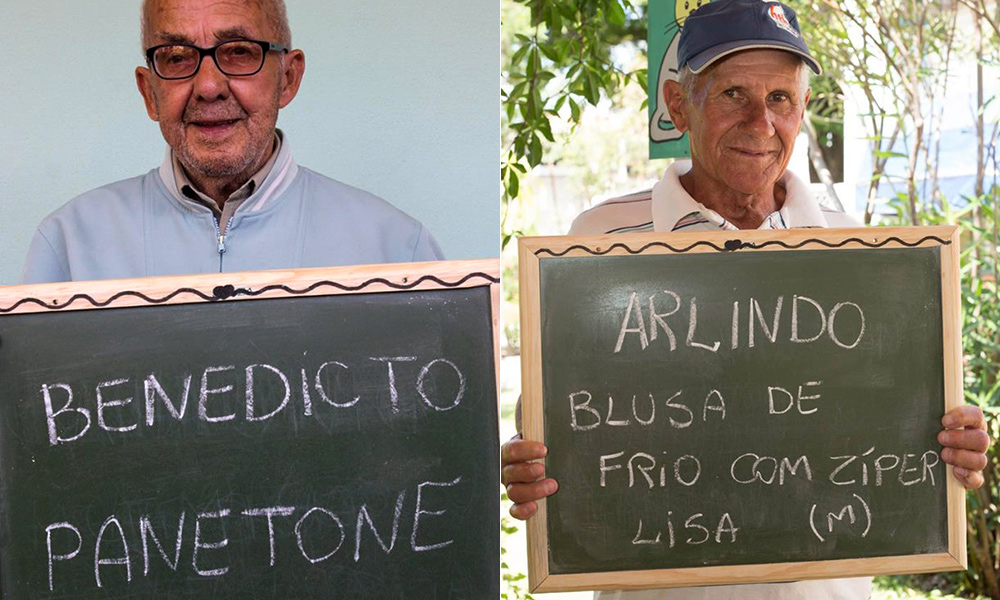 BENEDICTO
PANETONE
ARLINDO
BLUSA DE
FRIO COM ZÍPER
LISA (M)